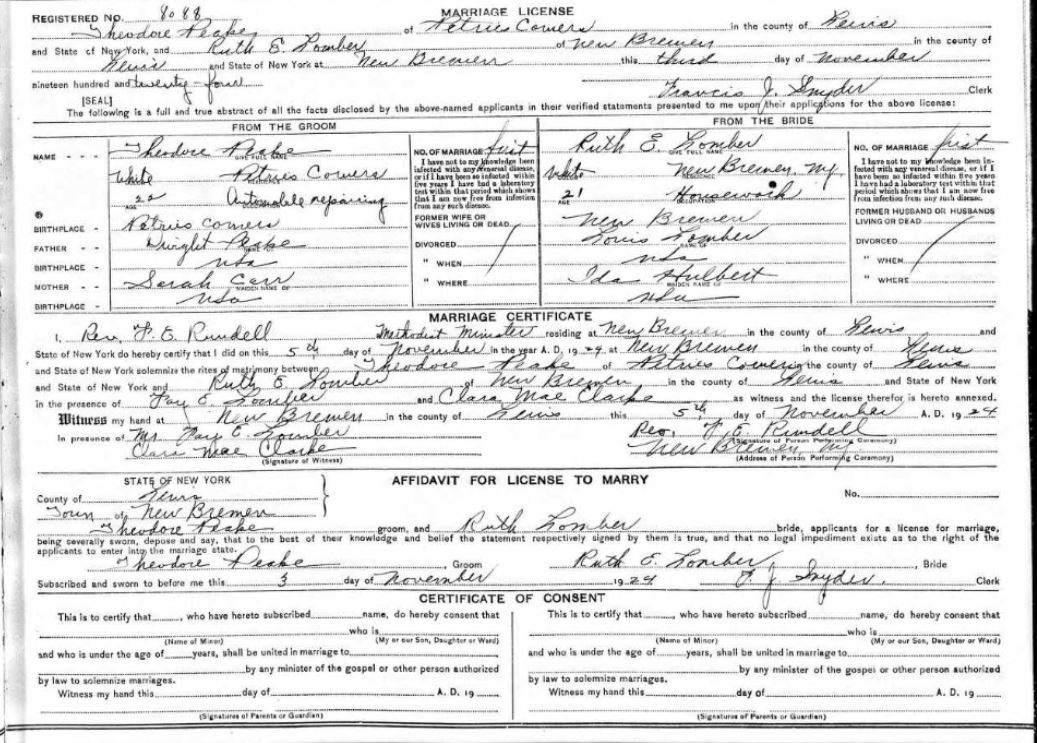 REGISTERED NO. 8088 MARRIAGE LICENSE
Theodore Peake of Petries Corners in the county of Lewis
and State of New York, and Ruth E Lomber of New Bremen in the county of
Lewis and State of New York at New Bremen this third day of November
nineteen hundred and twenty-four Francis J. Snyder Clerk
[SEAL]
The following is a full and true abstract of all the facts disclosed by the above-named applicants in their verified statements presented to me upon their applications for the above license:
FROM THE GROOM
NAME - - - Theodore Peake
GIVE FULL NAME
White Petries Corners
RESIDENCE
22 Automobile repairing
AGE OCCUPATION
BIRTHPLACE - Petries Corners
FATHER - - Dwight Peake
NAME OF
BIRTHPLACE - USA
MOTHER - Sarah Carr
MAIDEN NAME OF
BIRTHPLACE - USA
NO. OF MARRIAGE first
I have not to my knowledge been
infected with any venereal disease,
or if I have been so infected within
five years I have had a laboratory
test within that period which shows
that I am now free from infection
from any such disease.
FORMER WIFE OR
WIVES LIVING OR DEAD
DIVORCED
" WHEN
" WHERE
FROM THE BRIDE
Ruth E Lomber
GIVE FULL NAME
White New Bremen, NY
21 Housework
AGE
New Bremen
Louis Lomber
NAME OF
USA
Ida Hulbert
MAIDEN NAME OF
USA
NO. OF MARRIAGE first
I have not to my knowledge been in-
fected with any venereal disease, or if I
have been so infected within five years
I have had a laboratory test within that
period which shows that I am now free
from infection from any such disease.
FORMER HUSBAND OR HUSBANDS
LIVING OR DEAD
DIVORCED
" WHEN
" WHERE
MARRIAGE CERTIFICATE
I, Rev. F. E. Rundell Methodist Minister residing at New Bremen in the county of Lewis and
State of New York do hereby certify that I did on this 5th day of November in the year A. D. 1924 at New Bremen in the county of Lewis
and State of New York solemnize the rites of matrimony between Theodore Peake of Petries Corners in the county of Lewis
and State of New York and Ruth E Lomber of New Bremen in the county of Lewis and State of New York
in the presence of Fay E Lomber and Clara Mae Clarke as witness and the license therefor is hereto annexed.
Witness my hand at New Bremen in the county of Lewis this 5th day of November A. D. 1924
In presence of Mr Fay E. Lomber Rev. F. E. Rundell
(Signature of Person Performing Ceremony)
Clara Mae Clarke New Bremen, NY
(Signature of Witness) (Address of Person Performing Ceremony)
STATE OF NEW YORK AFFIDAVIT FOR LICENSE TO MARRY
County of Lewis No.
Town of New Bremen
Theodore Peake groom, and Ruth Lomber bride, applicants for a license for marriage,
being severally sworn, depose and say, that to the best of their knowledge and belief the statement respectively signed by them is true, and that no legal impediment exists as to the right of the
applicants to enter into the marriage state.
Theodore Peake, Groom Ruth E. Lomber, Bride
Subscribed and sworn to before me this 3 day of November 1924 F. J. Snyder, Clerk
CERTIFICATE OF CONSENT
This is to certify that, who have hereto subscribed name, do hereby consent that
who is
(Name of Minor) (My or our Son, Daughter or Ward)
and who is under the age of years, shall be united in marriage to
by any minister of the gospel or other person authorized
by law to solemnize marriages.
Witness my hand this day of A. D. 19
(Signatures of Parents or Guardian)
This is to certify that, who have hereto subscribed name, do hereby consent that
who is
(Name of Minor) (My or our Son, Daughter or Ward)
and who is under the age of years, shall be united in marriage to
by any minister of the gospel or other person authorized
by law to solemnize marriages.
Witness my hand this day of A. D. 19
(Signatures of Parents or Guardian)